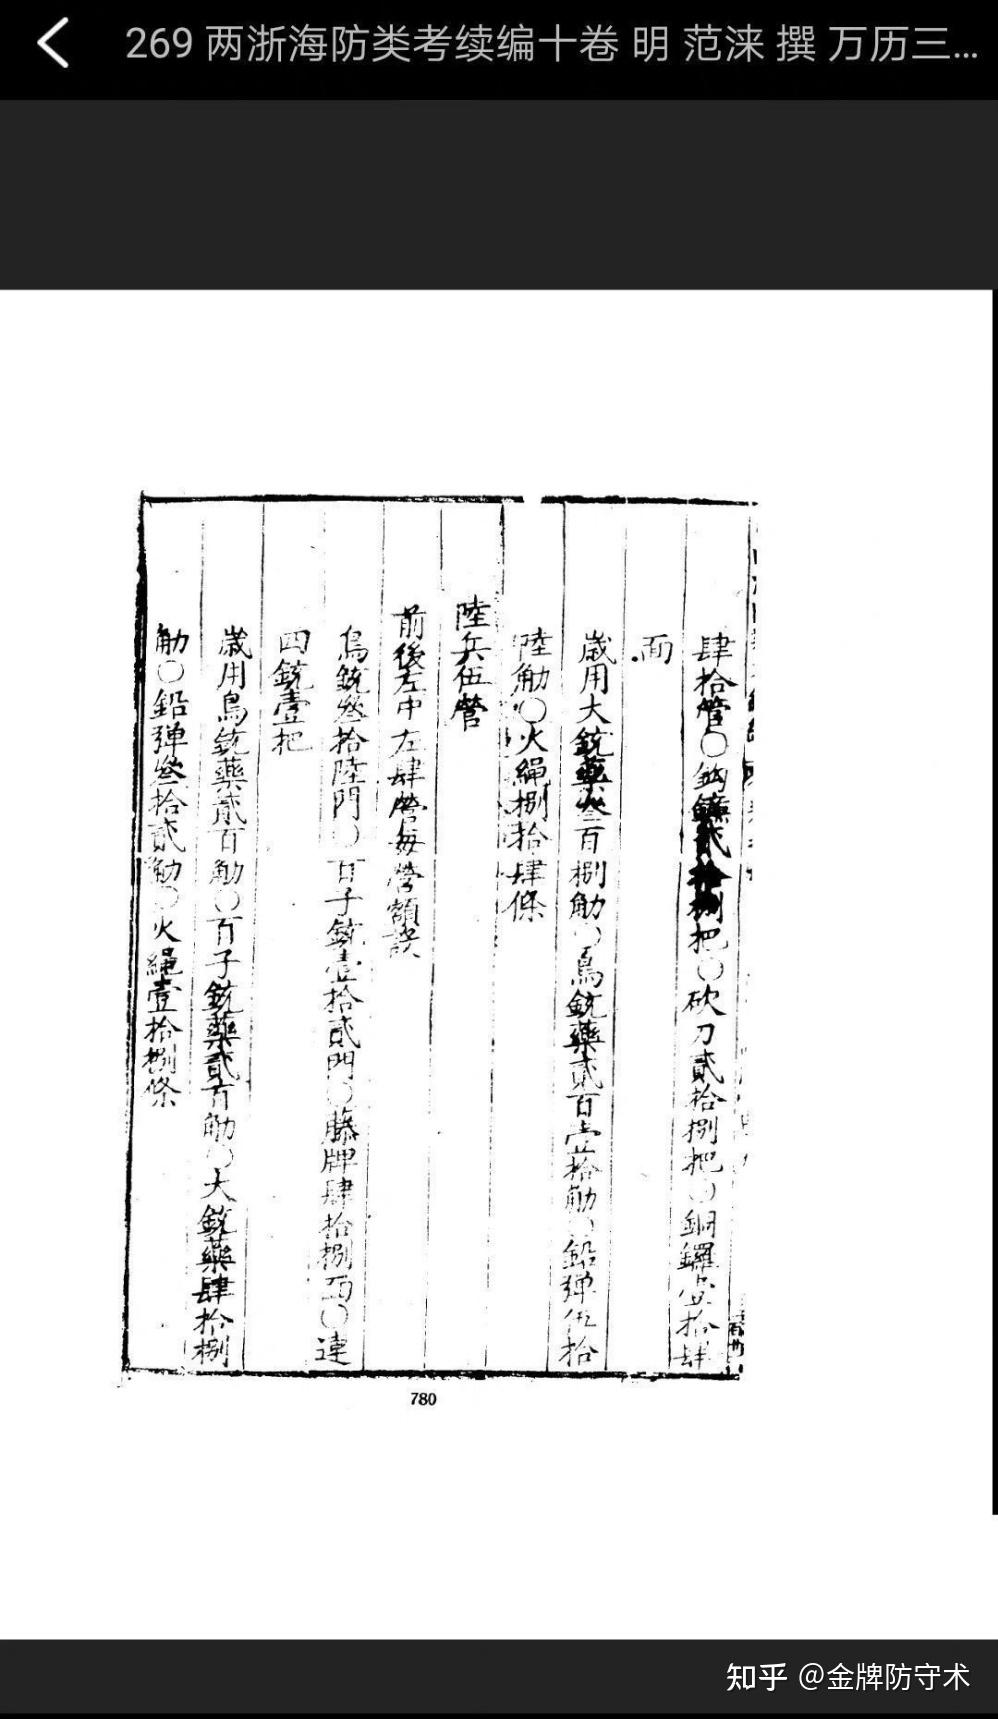 269 两浙海防类考续编十卷 明 范涞 撰 万历三...
肆拾管〇鈎鐮貳拾捌把〇砍刀貳拾捌把〇銅鑼壹拾肆
面
歲用大銃藥叁百捌觔〇鳥銃藥貳百壹拾觔〇鉛彈伍拾
陸觔〇火繩捌拾肆條
陸兵伍營
前後左中左肆營每營額設
鳥銃叁拾陸門〇百子銃壹拾貳門〇藤牌肆拾捌面〇連
四銃壹把
歲用鳥銃藥貳百觔〇百子銃藥貳百觔〇大銃藥肆拾捌
觔〇鉛彈叁拾貳觔〇火繩壹拾捌條
780
知乎 @金牌防守术